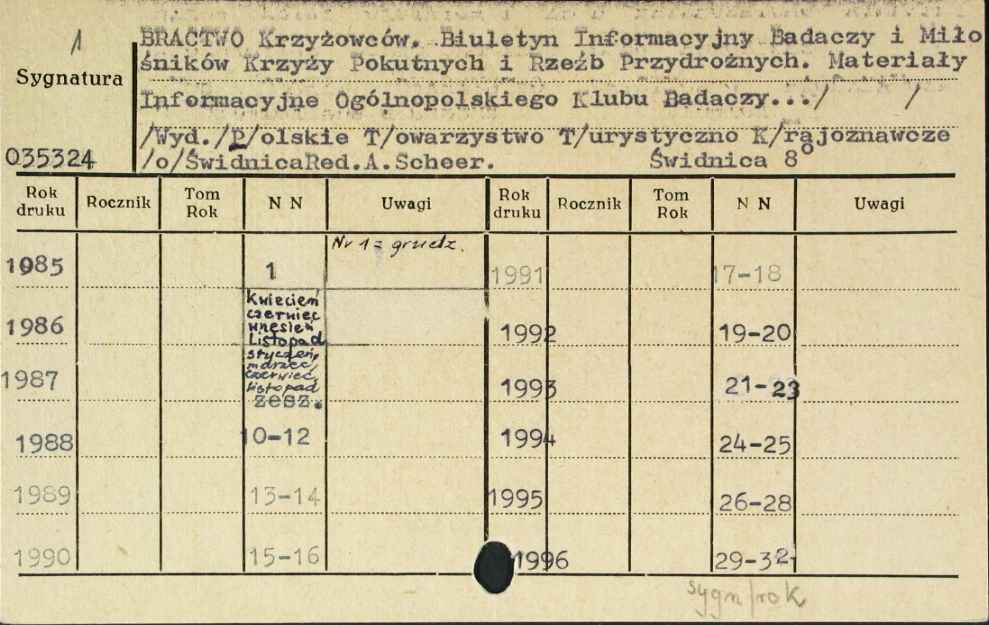 1
BRACTWO Krzyżowców. Biuletyn Informacyjny Badaczy i Miło
śników Krzyży Pokutnych i Rzeźb Przydrożnych. Materiały
Sygnatura
Informacyjne Ogólnopolskiego Klubu Badaczy.../ /
/Wyd./P/olskie T/owarzystwo T/urystyczno K/rajoznawcze
035324 /o/ŚwidnicaRed.A.Scheer. Świdnica 8°
Rok druku Rocznik Tom Rok N N Uwagi Rok druku Rocznik Tom Rok N N Uwagi
1985 1 Nr 1 = grudz. 1991 17-18
1986 Kwiecień
czerwiec
wrzesień
Listopad 1992 19-20
1987 styczeń,
marzec,
czerwiec,
listopad
zesz. 1993 21-23
1988 10-12 1994 24-25
1989 13-14 1995 26-28
1990 15-16 1996 29-32
sygn/rok